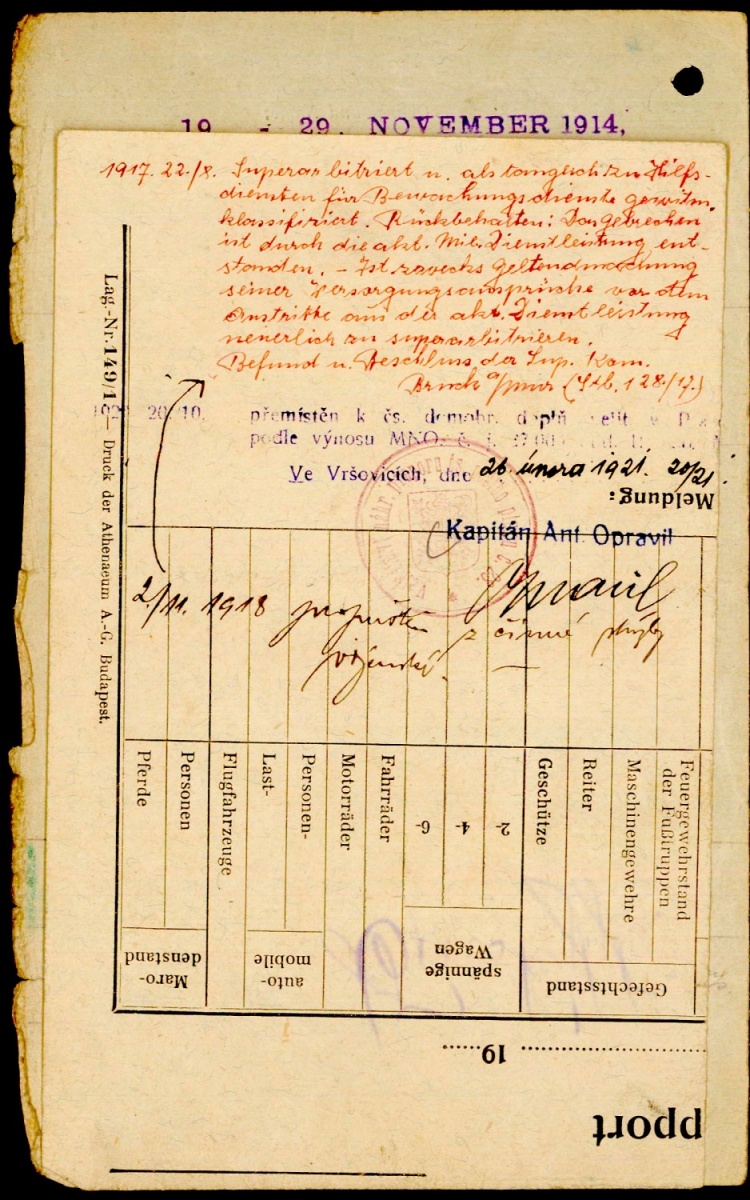 19 - 29. NOVEMBER 1914,
1917. 22./8. Superarbitriert u. als tauglich zu Hilfs-
diensten für Bewachungsdienste
klassifiziert. Rückbehalten: Das Gebrechen
ist durch die akt. Mil. Dienstleistung ent-
standen. – Ist zwecks Geltendmachung
seiner Versorgungsansprüche vor dem
Austritte aus der akt. Dienstleistung
neuerlich zu superarbitrieren.
Befund u. Beschluss der Sup. Kom.
Bruck a/mur (Stb. 128/17.)
20. 10. přemístěn k čs. doplň velit v
podle výnosu MNO. č. j.
Ve Vršovicích, dne 26 února 1921. 20/21
Meldung:
Kapitán Ant. Opravil
Opravil
2./11. 1918 propuštěn z činné služby
vojenské.
Lag.-Nr. 149/1 — Druck der Athenaeum A.-G. Budapest.
Pferde
Personen
Flugfahrzeuge
Last-
Personen-
Motorräder
Fahrräder
6-
4-
2-
Geschütze
Reiter
Maschinengewehre
Feuergewehrstand
der Fußtruppen
Maro-
denstand
auto-
mobile
spännige
Wagen
Gefechtsstand
19
pport